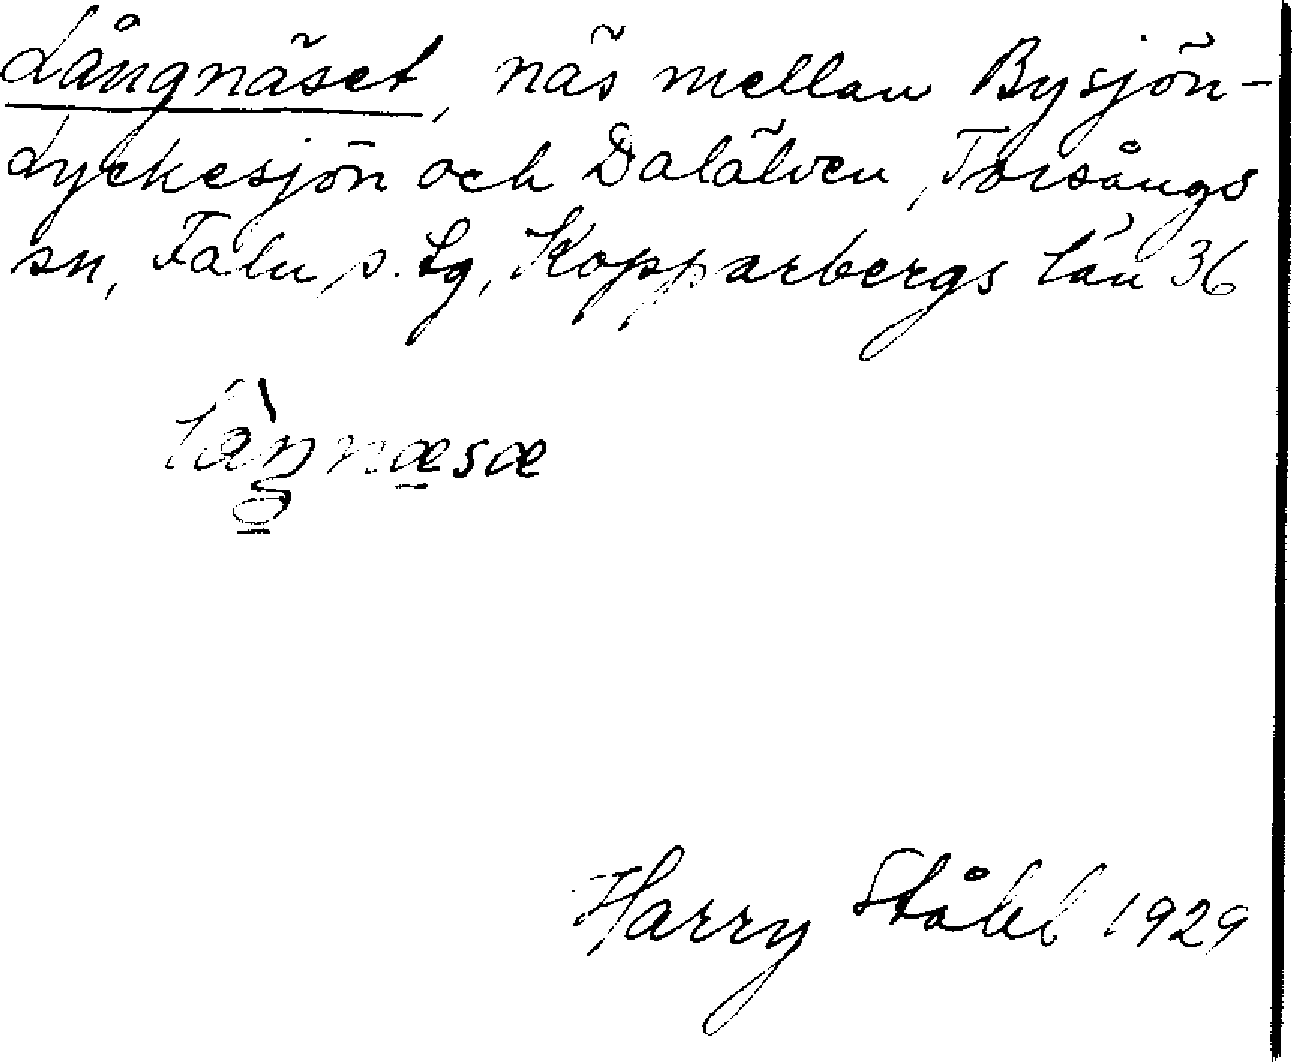 Långnäset, näs mellan Bysjön-
Lyckesjön och Dalälven, Torsångs
sn, Falu s. tg, Kopparbergs län 36
làŋnæsæ
Harry Ståhl 1929